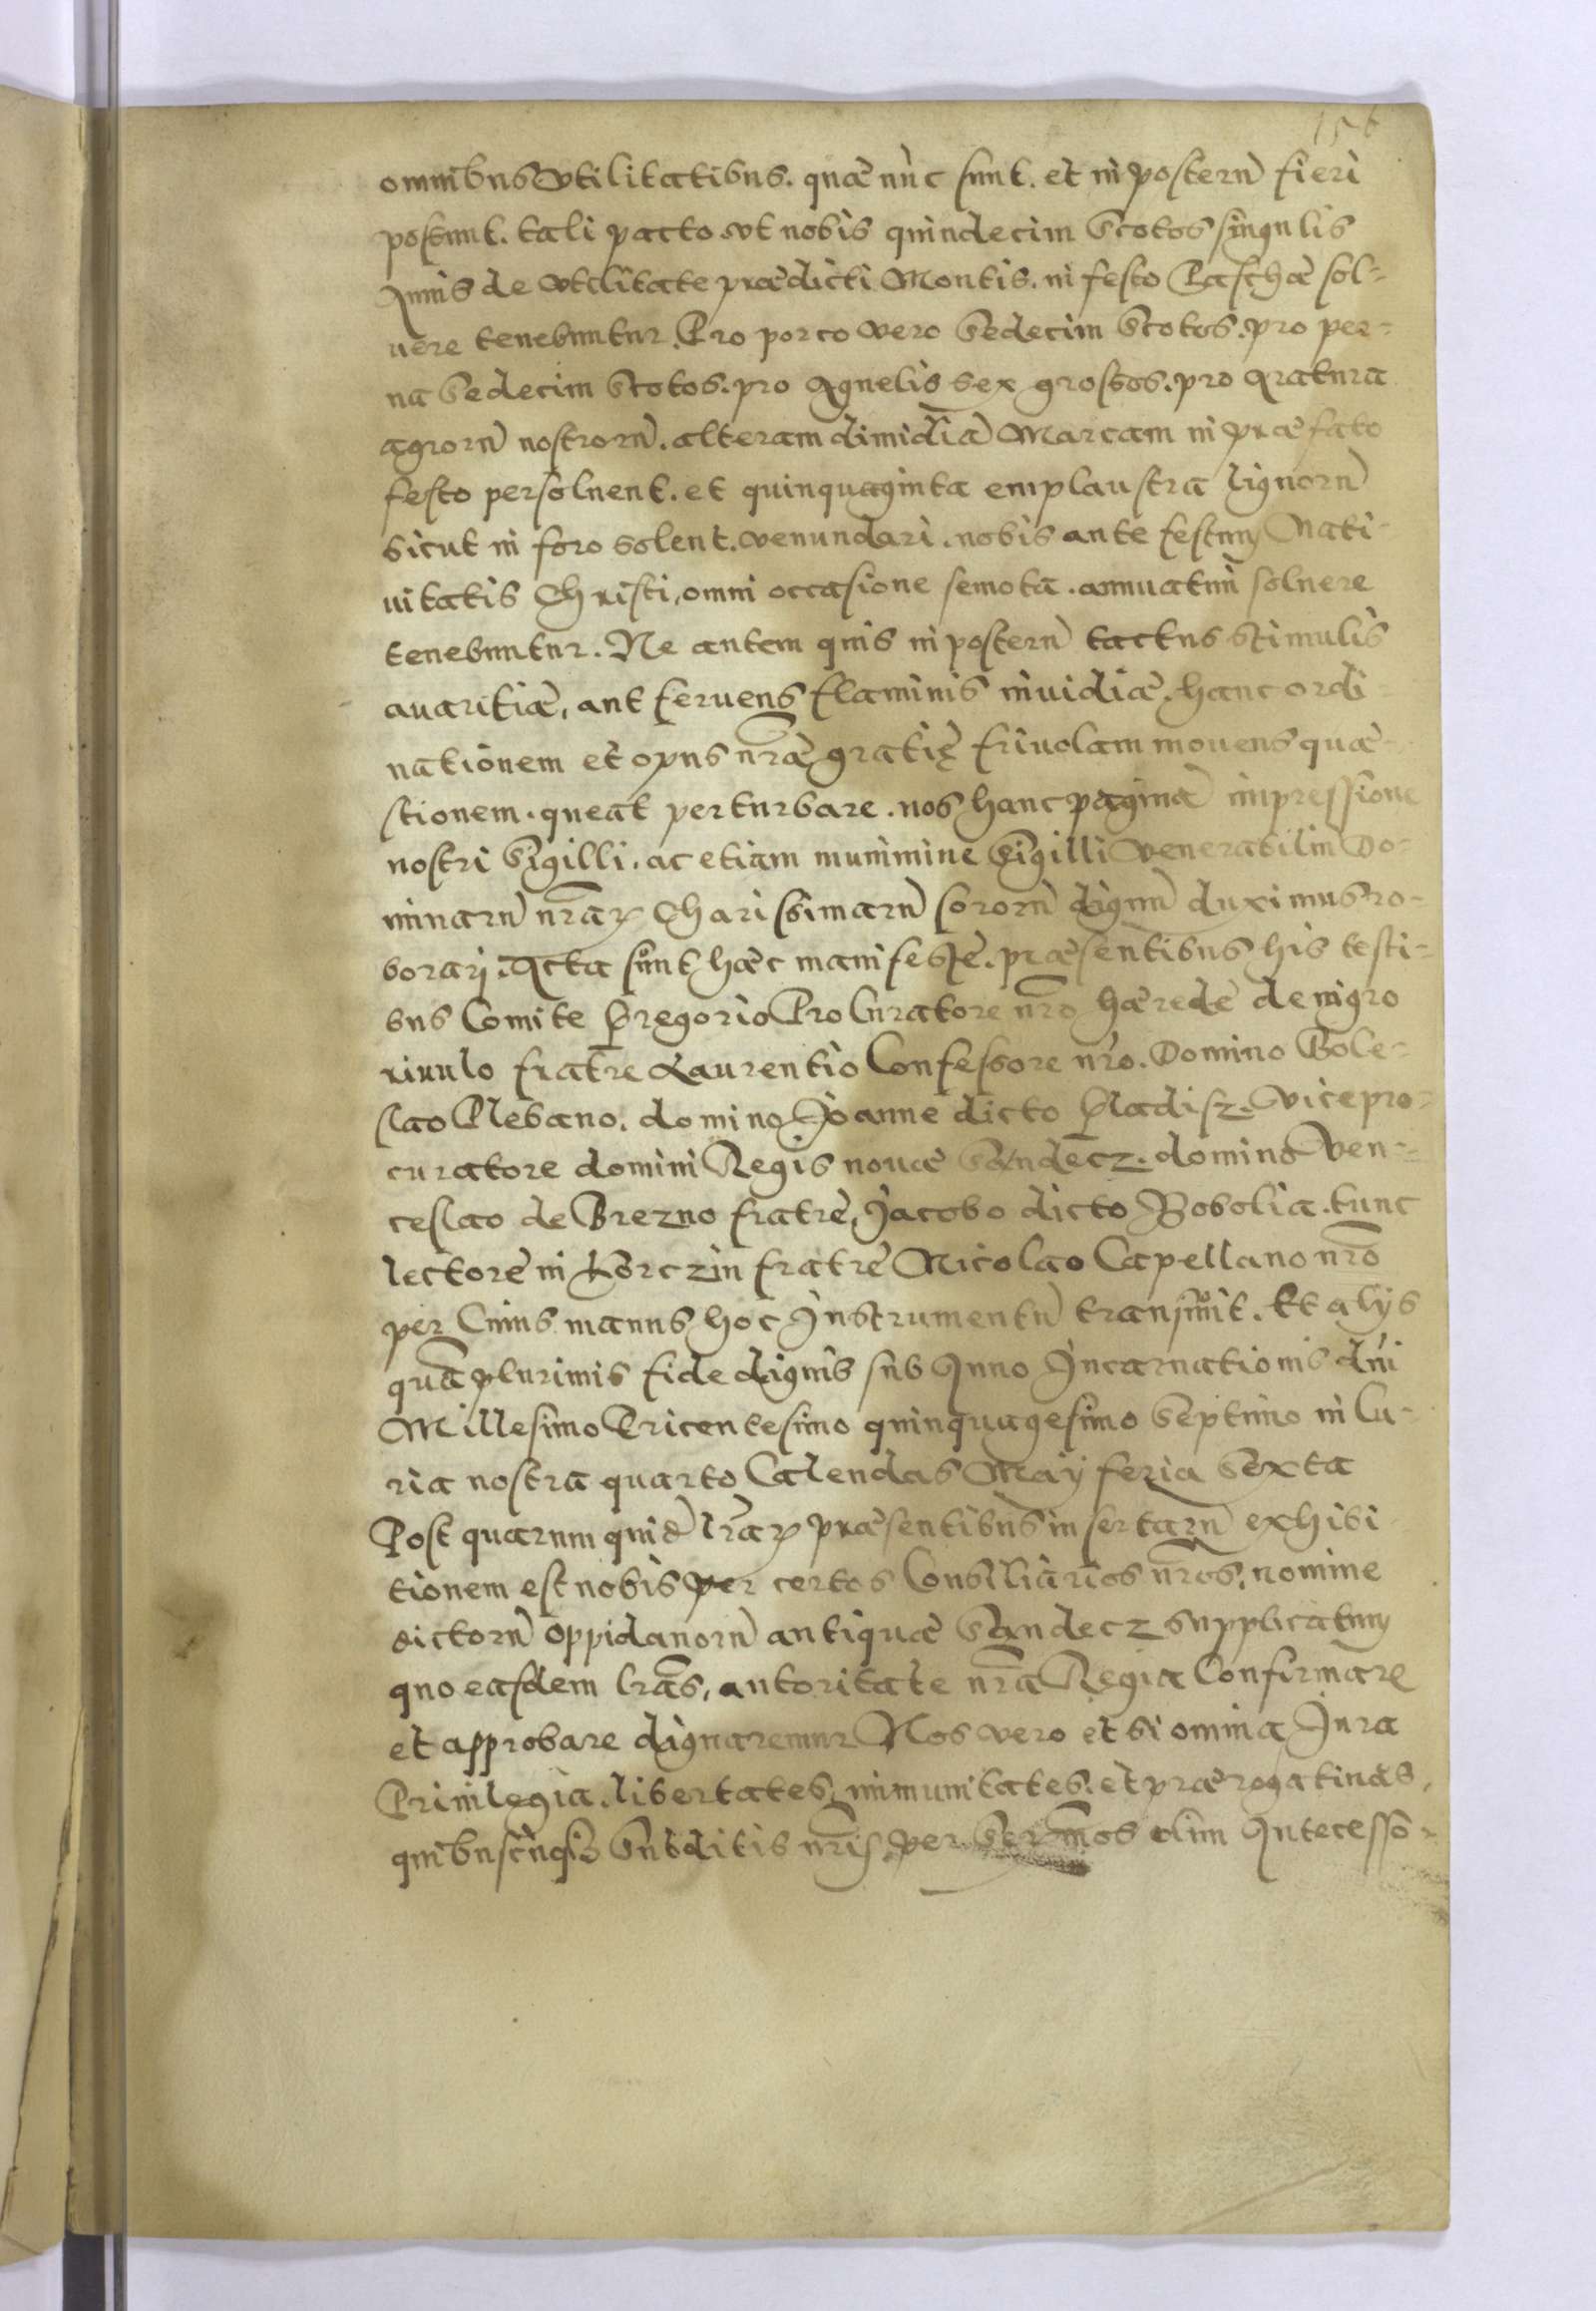 156
omnibus vtilitatibus. quæ nùnc sunt. et in posterū fieri
possunt. tali pacto vt nobis quindecim Scotos singulis
Annis de vtilitate prædicti Montis. in festo Paschæ sol-
uere tenebuntur. Pro porco vero Sedecim Scotos. pro per-
na Sedecim Scotos. pro Agnelis sex grossos. pro Aratura
agrorū nostrorū. alteram dimidiā Marcam in præfato
festo persoluent. et quinquaginta emplaustra lignorū
sicut in foro solent. venundari. nobis ante festum Nati-
uitatis Christi, omni occasione semota. annuatim soluere
tenebuntur. Ne autem quis in posterū tactus stimulis
auaritiæ, aut feruens flaminis inuidiæ. hanc ordi
nationem et opus nr̃æ gratię friuolam mouens quæ-
stionem. queat perturbare. nos hanc paginā impressione
nostri Sigilli. ac etiam munimine Sigilli Venerabiliū Do-
minarū nr̃aꝝ Charissimarū sororū dignū duximus ro-
borarj. Acta sunt hæc manifestè. præsentibus his testi-
bus Comite Gregorio Procuratore nr̃o hærede de nigro
riuulo fratre Laurentio Confessore nr̃o. Domino Bole-
slao Plebano. domino Joanne dicto Gladisz. Vicepro-
curatore domini Regis nouæ Sandecz. domino Ven-
ceslao de Brezno fratre, Jacobo dicto Bobolia. tunc
lectore in Korczin fratre Nicolao Capellano nr̃o
per Cuius manus hoc Jnstrumentū transiuit. Et alijs
quā plurimis fide dignis sub Anno Jncarnationis dńi
Millesimo Tricentesimo quinquagesimo Septimo in Cu-
ria nostra quarto Calendas Maij feria Sexta
Post quarum quidē lr̃aꝝ præsentibus insertarū exhibi
tionem est nobis per certos Consiliarios nr̃os, nomine
dictorū oppidanorū antiquæ Sandecz supplicatum
quo easdem lr̃as, autoritate nr̃a Regia Confirmare
et approbare dignaremur Nos vero etsi omnia Jura
Priuilegia. libertates, immunitates. et prærogatiuas,
quibuscūqȝ Subditis nr̃is. per Serm̃os olim Antecesso-